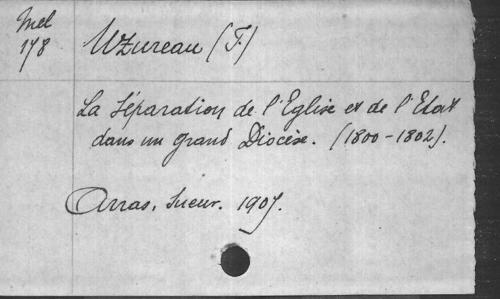 Mel
178
Uzureau (F.)
La Séparation de l'Eglise et de l'Etat
dans un grand Diocèse. (1800-1802).
Arras, Sueur. 1907.